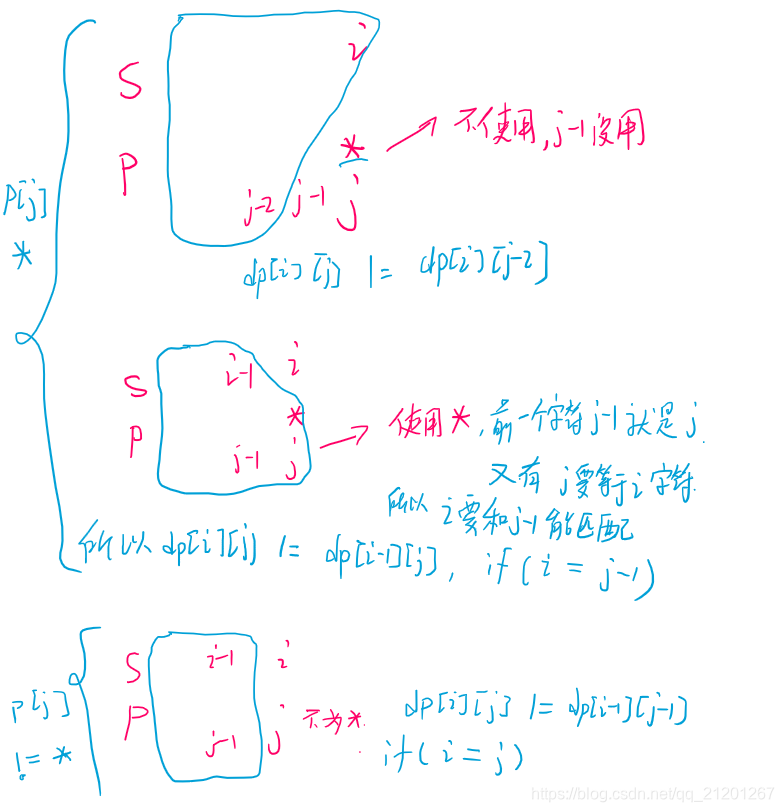 S i
P * → 不使用,j-1没用
j-2 j-1 j
P[j]
*
dp[i][j] |= dp[i][j-2]
S i-1 i
P *
j-1 j → 使用*,前一个字符j-1就是j.
又有 j要等于i字符.
所以 i要和j-1能匹配
所以dp[i][j] |= dp[i-1][j], if(i = j-1)
S i-1 i
P j-1 j 不为*.
P[j]
!= *
dp[i][j] |= dp[i-1][j-1]
if(i = j)
https://blog.csdn.net/qq_21201267